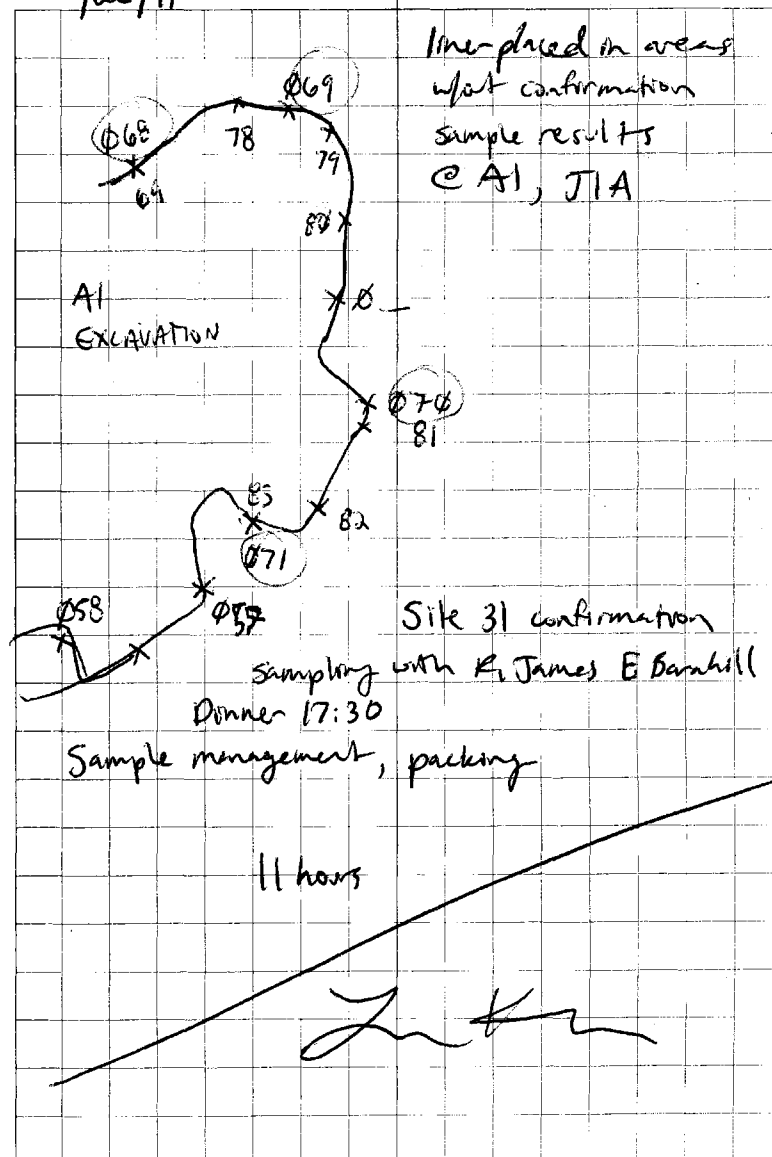 liner placed in areas
w/out confirmation
sample results
@ A1, J1A
Ø68
69
78
Ø69
79
8Ø
Ø
A1
EXCAVATION
Ø7Ø
81
82
83
Ø71
Ø58
Site 31 confirmation
sampling with R, James E Barnhill
Dinner 17:30
Sample management, packing
11 hours